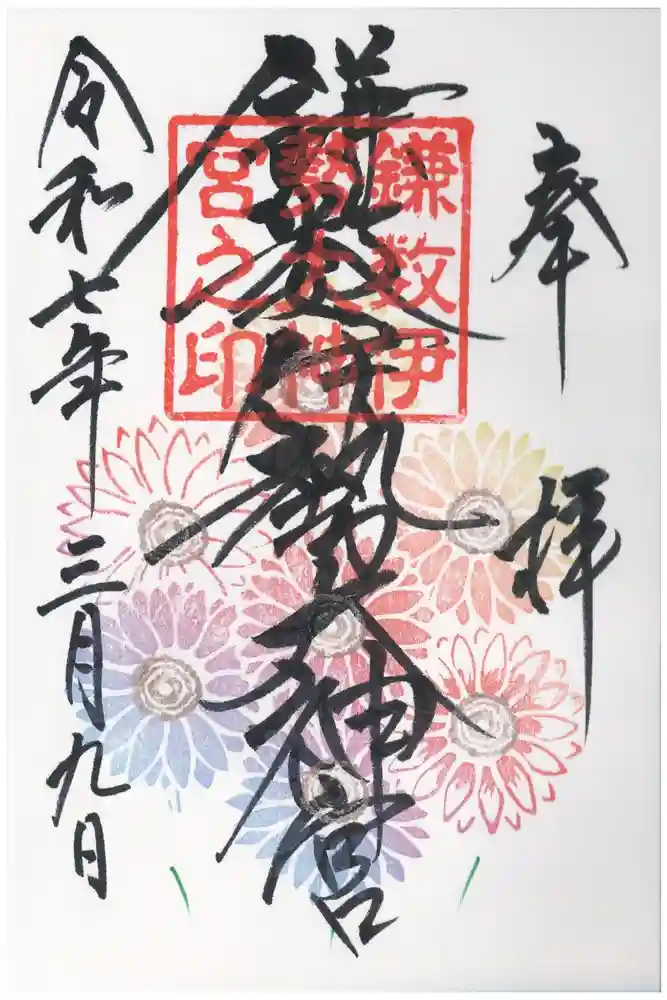 奉拝
鎌数伊勢大神宮
鎌数伊
勢大神
宮之印
令和七年三月九日